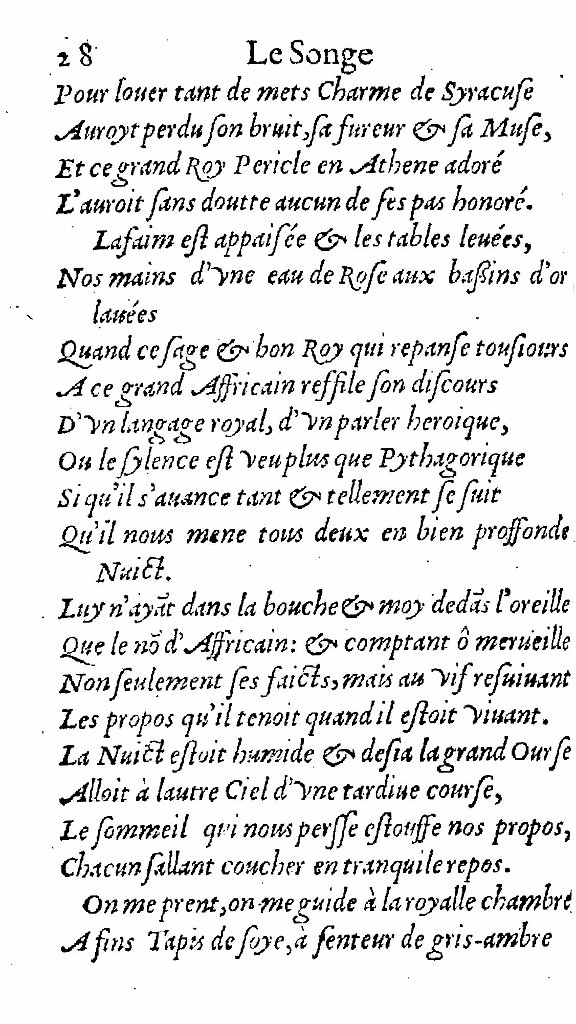 28 Le Songe
Pour louer tant de mets Charme de Syracuſe
Auroyt perdu ſon bruit, ſa fureur & ſa Muſe,
Et ce grand Roy Pericle en Athene adoré
L'auroit ſans doutte aucun de ſes pas honoré.
La faim eſt appaiſée & les tables leuées,
Nos mains d'vne eau de Roſe aux baßins d'or
lauées
Quand ce ſage & bon Roy qui repanſe touſiours
A ce grand Affricain reffile ſon diſcours
D'vn langage royal, d'vn parler heroique,
Ou le ſylence eſt veu plus que Pythagorique
Si qu'il s'auance tant & tellement ſe ſuit
Qu'il nous mene tous deux en bien proffonde
Nuict.
Luy n'ayãt dans la bouche & moy dedãs l'oreille
Que le nõ d'Affricain: & comptant ô merueille
Non ſeulement ſes faicts, mais au vif reſuiuant
Les propos qu'il tenoit quand il eſtoit viuant.
La Nuict eſtoit humide & deſia la grand Ourſe
Alloit à lautre Ciel d'vne tardiue courſe,
Le ſommeil qui nous perſſe eſtouffe nos propos,
Chacun ſallant coucher en tranquile repos.
On me prent, on me guide à la royalle chambre
A fins Tapis de ſoye, à ſenteur de gris-ambre